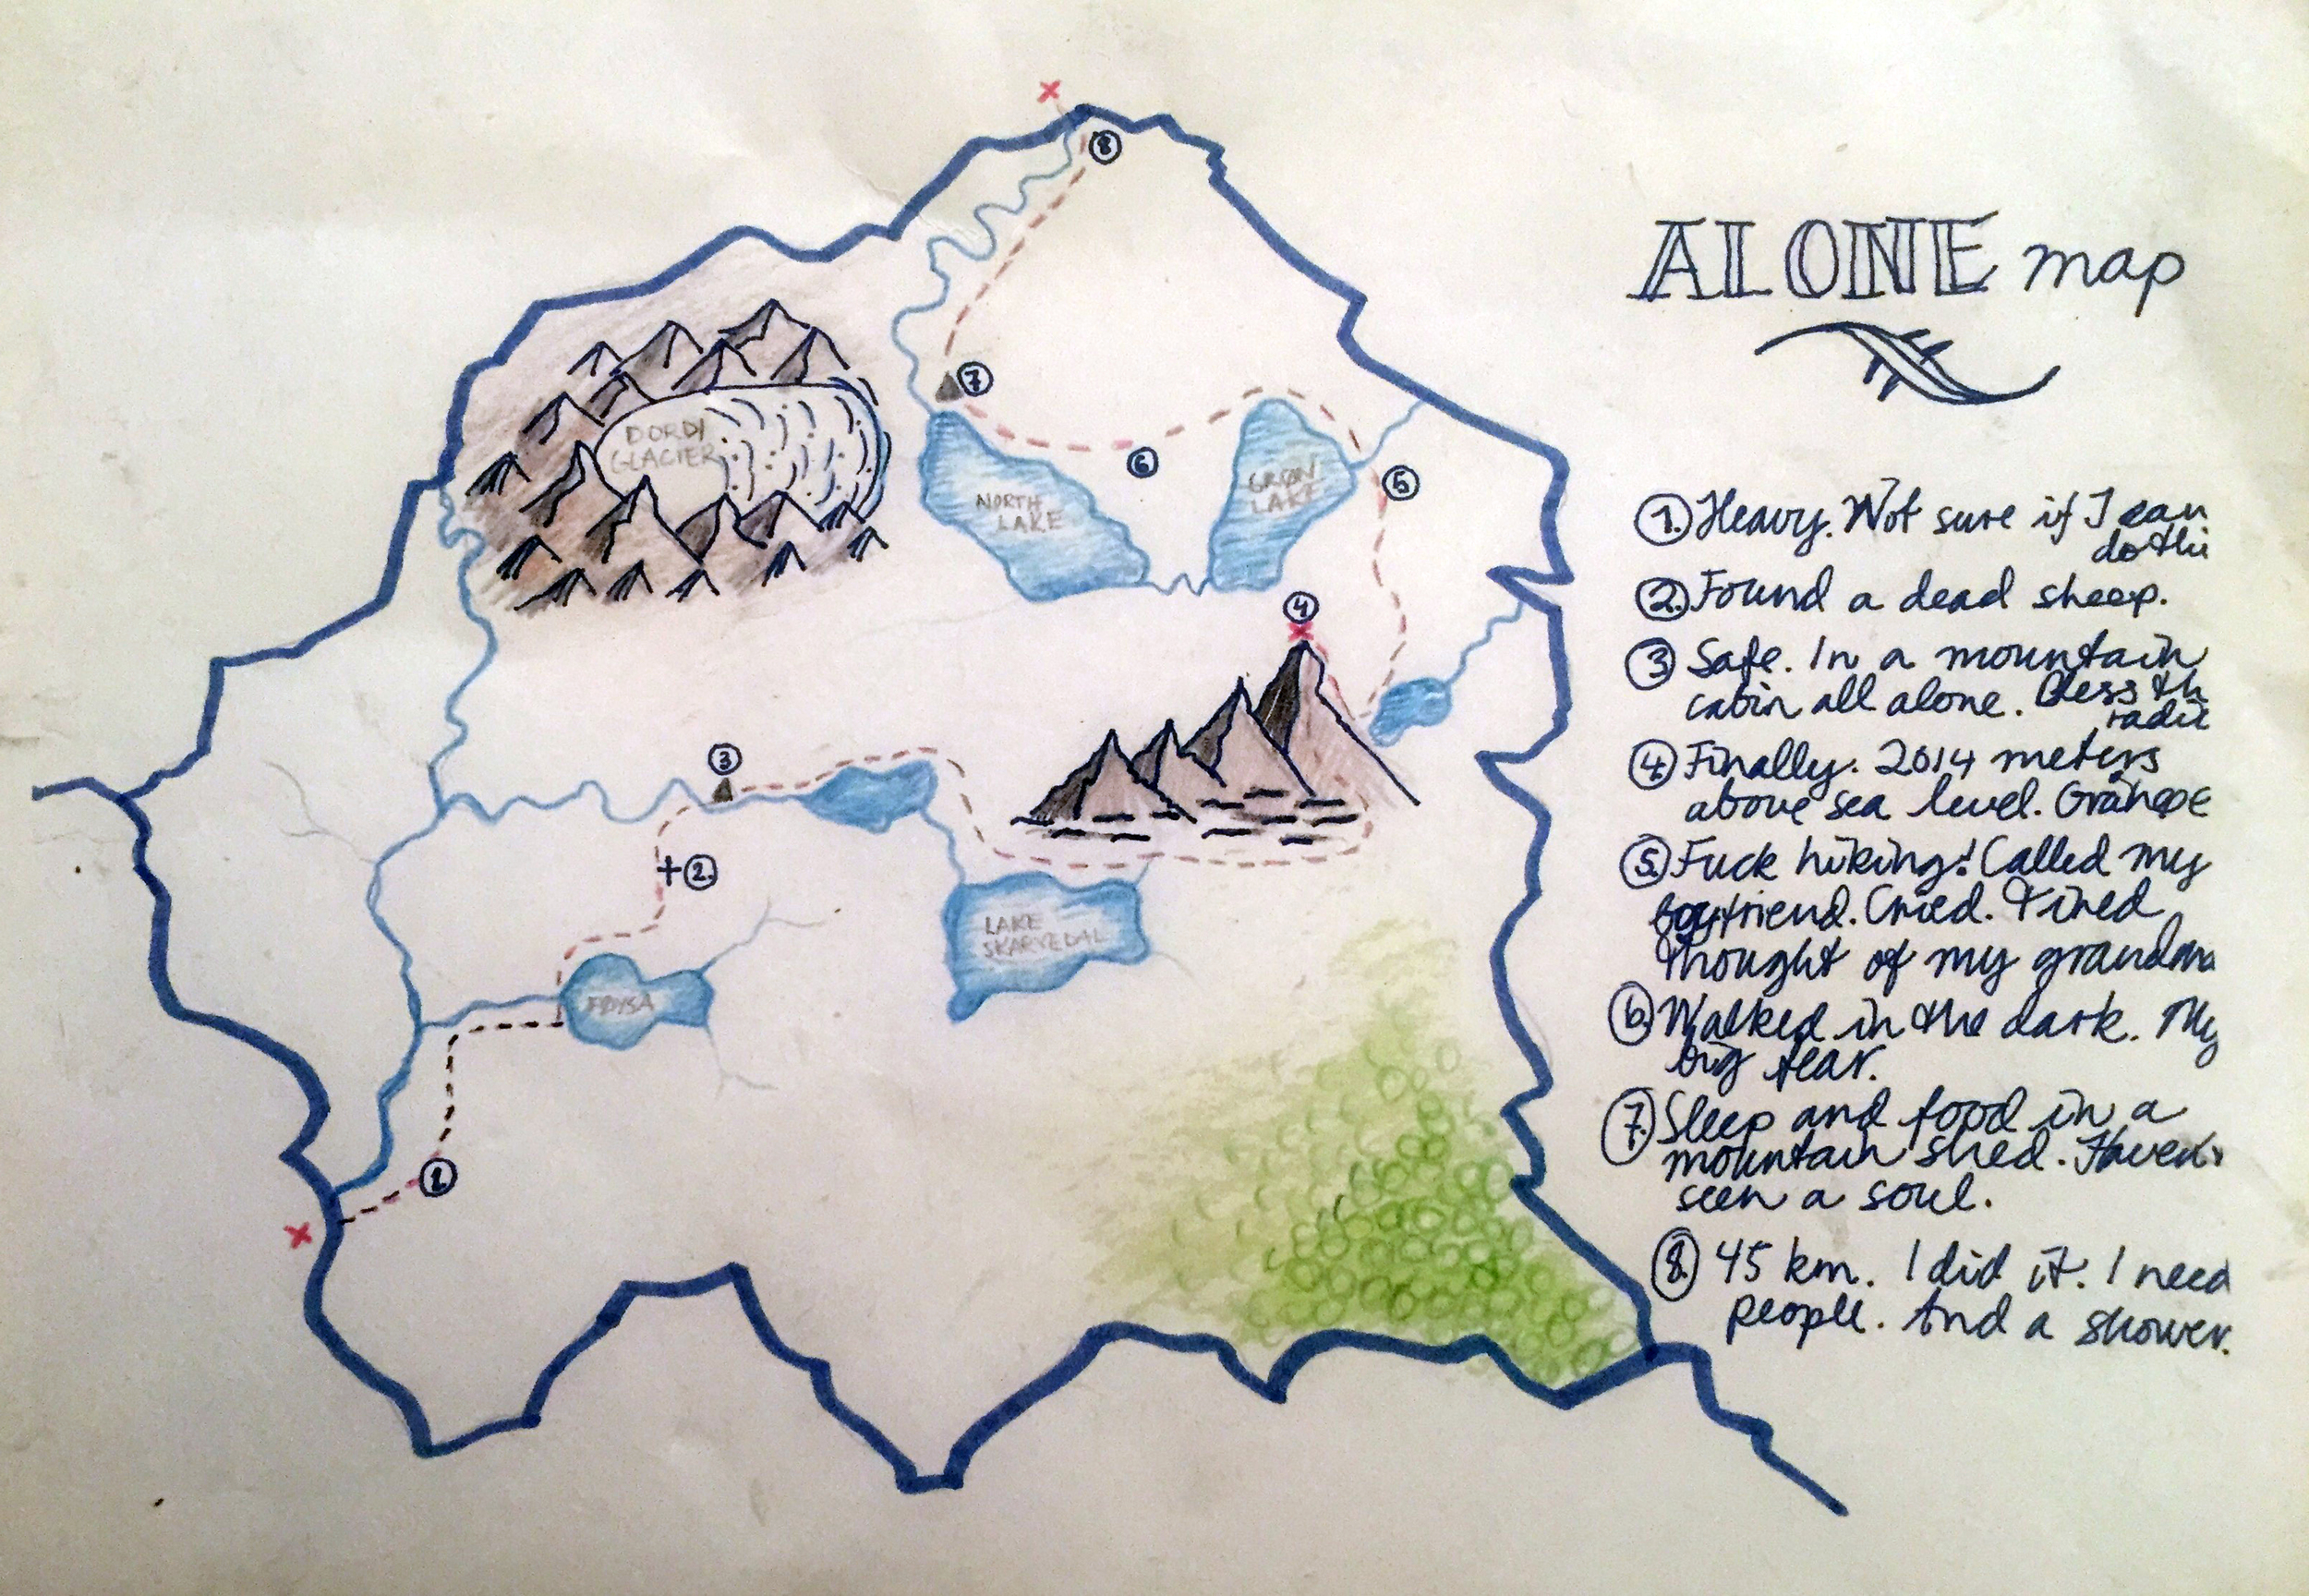 ALONE map
8
7
DORDI
GLACIER
NORTH
LAKE
6
GRØN
LAKE
5
4
3
+2.
LAKE
1.
1. Heavy. Not sure if I can
do thi
2. Found a dead sheep.
3 Safe. In a mountain
cabin all alone. Bless th
radio
4. Finally. 2014 meters
above sea level.
5. Fuck hiking! Called my
boyfriend. Cried. Tired
Thought of my grandma
6. Walked in the dark. My
big fear.
7. Sleep and food in a
mountain shed. Haven't
seen a soul.
8. 45 km. I did it. I need
people. And a shower.